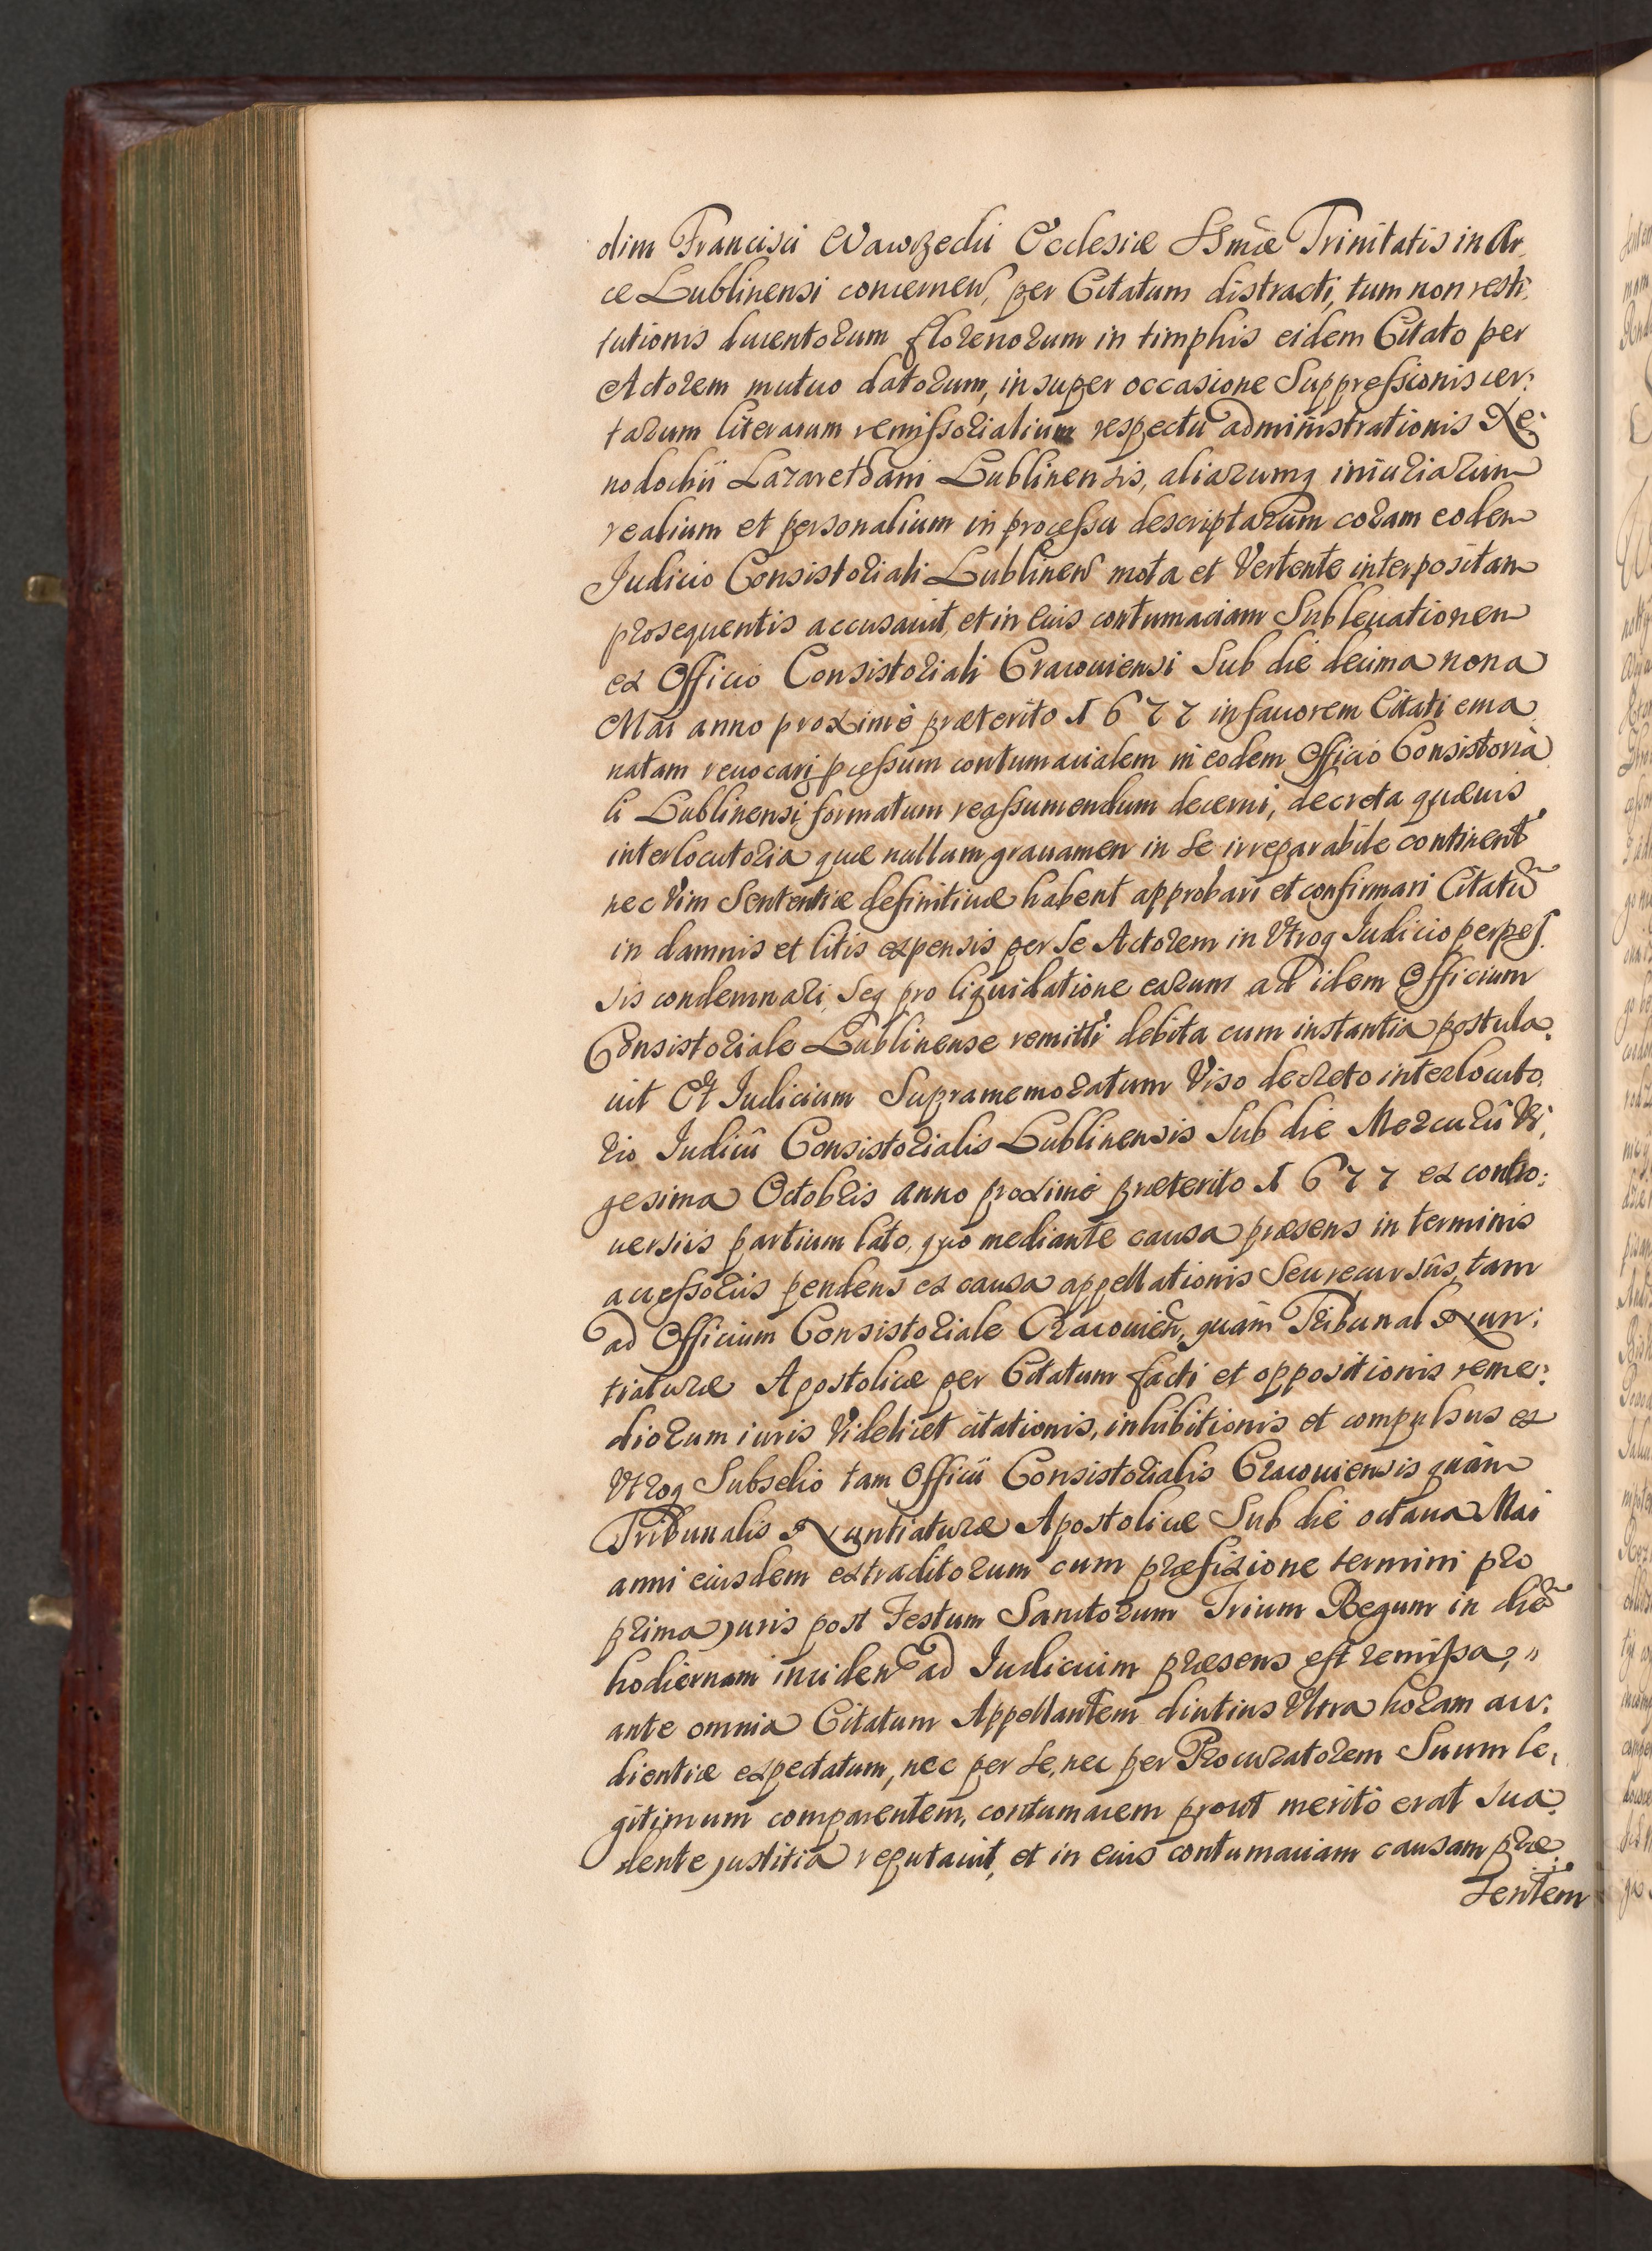 olim Francisci Wawrzedii Ecclesiæ SSmæ Trinitatis in Ar,
ce Lublinensi concernen, per Citatum distracti, tum non resti,
tutionis ducentorum florenorum in timphis eidem Citato per
Actorem mutuo datorum, insuper occasione Suppressionis cer:
tarum literarum remissorialium respectu administrationis Xe:
nodochii Lazarethani Lublinensis, aliarumq iniuriarum
realium et personalium in processu descriptarum coram eodem
Judicio Consistoriali Lublinen mota et Vertente interpositam
prosequentis accusauit, et in eius contumaciam Subleuationem
ex Officio Consistoriali Cracouiensi Sub die decima nona
Mai anno proximè præterito 1677 in fauorem Citati ema
natam reuocari, pcessum contumacialem in eodem Officio Consistoria
li Lublinensi formatum reassumendum decerni, decreta quæuis
interlocutoria quæ nullum grauamen in se irreparabile continent
nec Vim Sententiæ definitiuæ habent approbari et confirmari Citatũ
in damnis et litis expensis per se Actorem in Vtroq Judicio perpes
sis condemnari, Seq pro liquidatione earum ad idem Officium
Consistoriale Lublinense remitti debita cum instantia postula,
uit Et Judicium Supramemoratum Viso decreto interlocuto,
rio Judicii Consistorialis Lublinensis Sub die Mercurii Vi,
gesima Octobris anno proximè præterito 1677 ex contro:
uersiis partium lato, quo mediante causa præsens in terminis
accessoriis pendens ex causa appellationis Seu recursûs, tam
ad Officium Consistoriale Cracouien̄, quàm Tribunal Nun:
tiaturæ Apostolicæ per Citatum facti et oppositionis reme:
diorum iuris Videlicet citationis, inhibitionis et compulsus ex
Vtroq Subselio tam Officii Consistorialis Cracouiensis quàm
Tribunalis Nuntiaturæ Apostolicæ Sub die octaua Mai
anni eiusdem extraditorum cum præfixione termini pro
prima Juris post Festum Sanctorum Trium Regum in diẽ
hodiernam inciden ad Judicium præsens est remissa,
ante omnia Citatum Appellantem diutius Vltra horam au:
dientiæ expectatum, nec per se, nec per Procuratorem Suum le,
gitimum comparentem, contumacem prout meritò erat sua,
dente Justitia reputauit, et in eius contumaciam causam præ
sentem